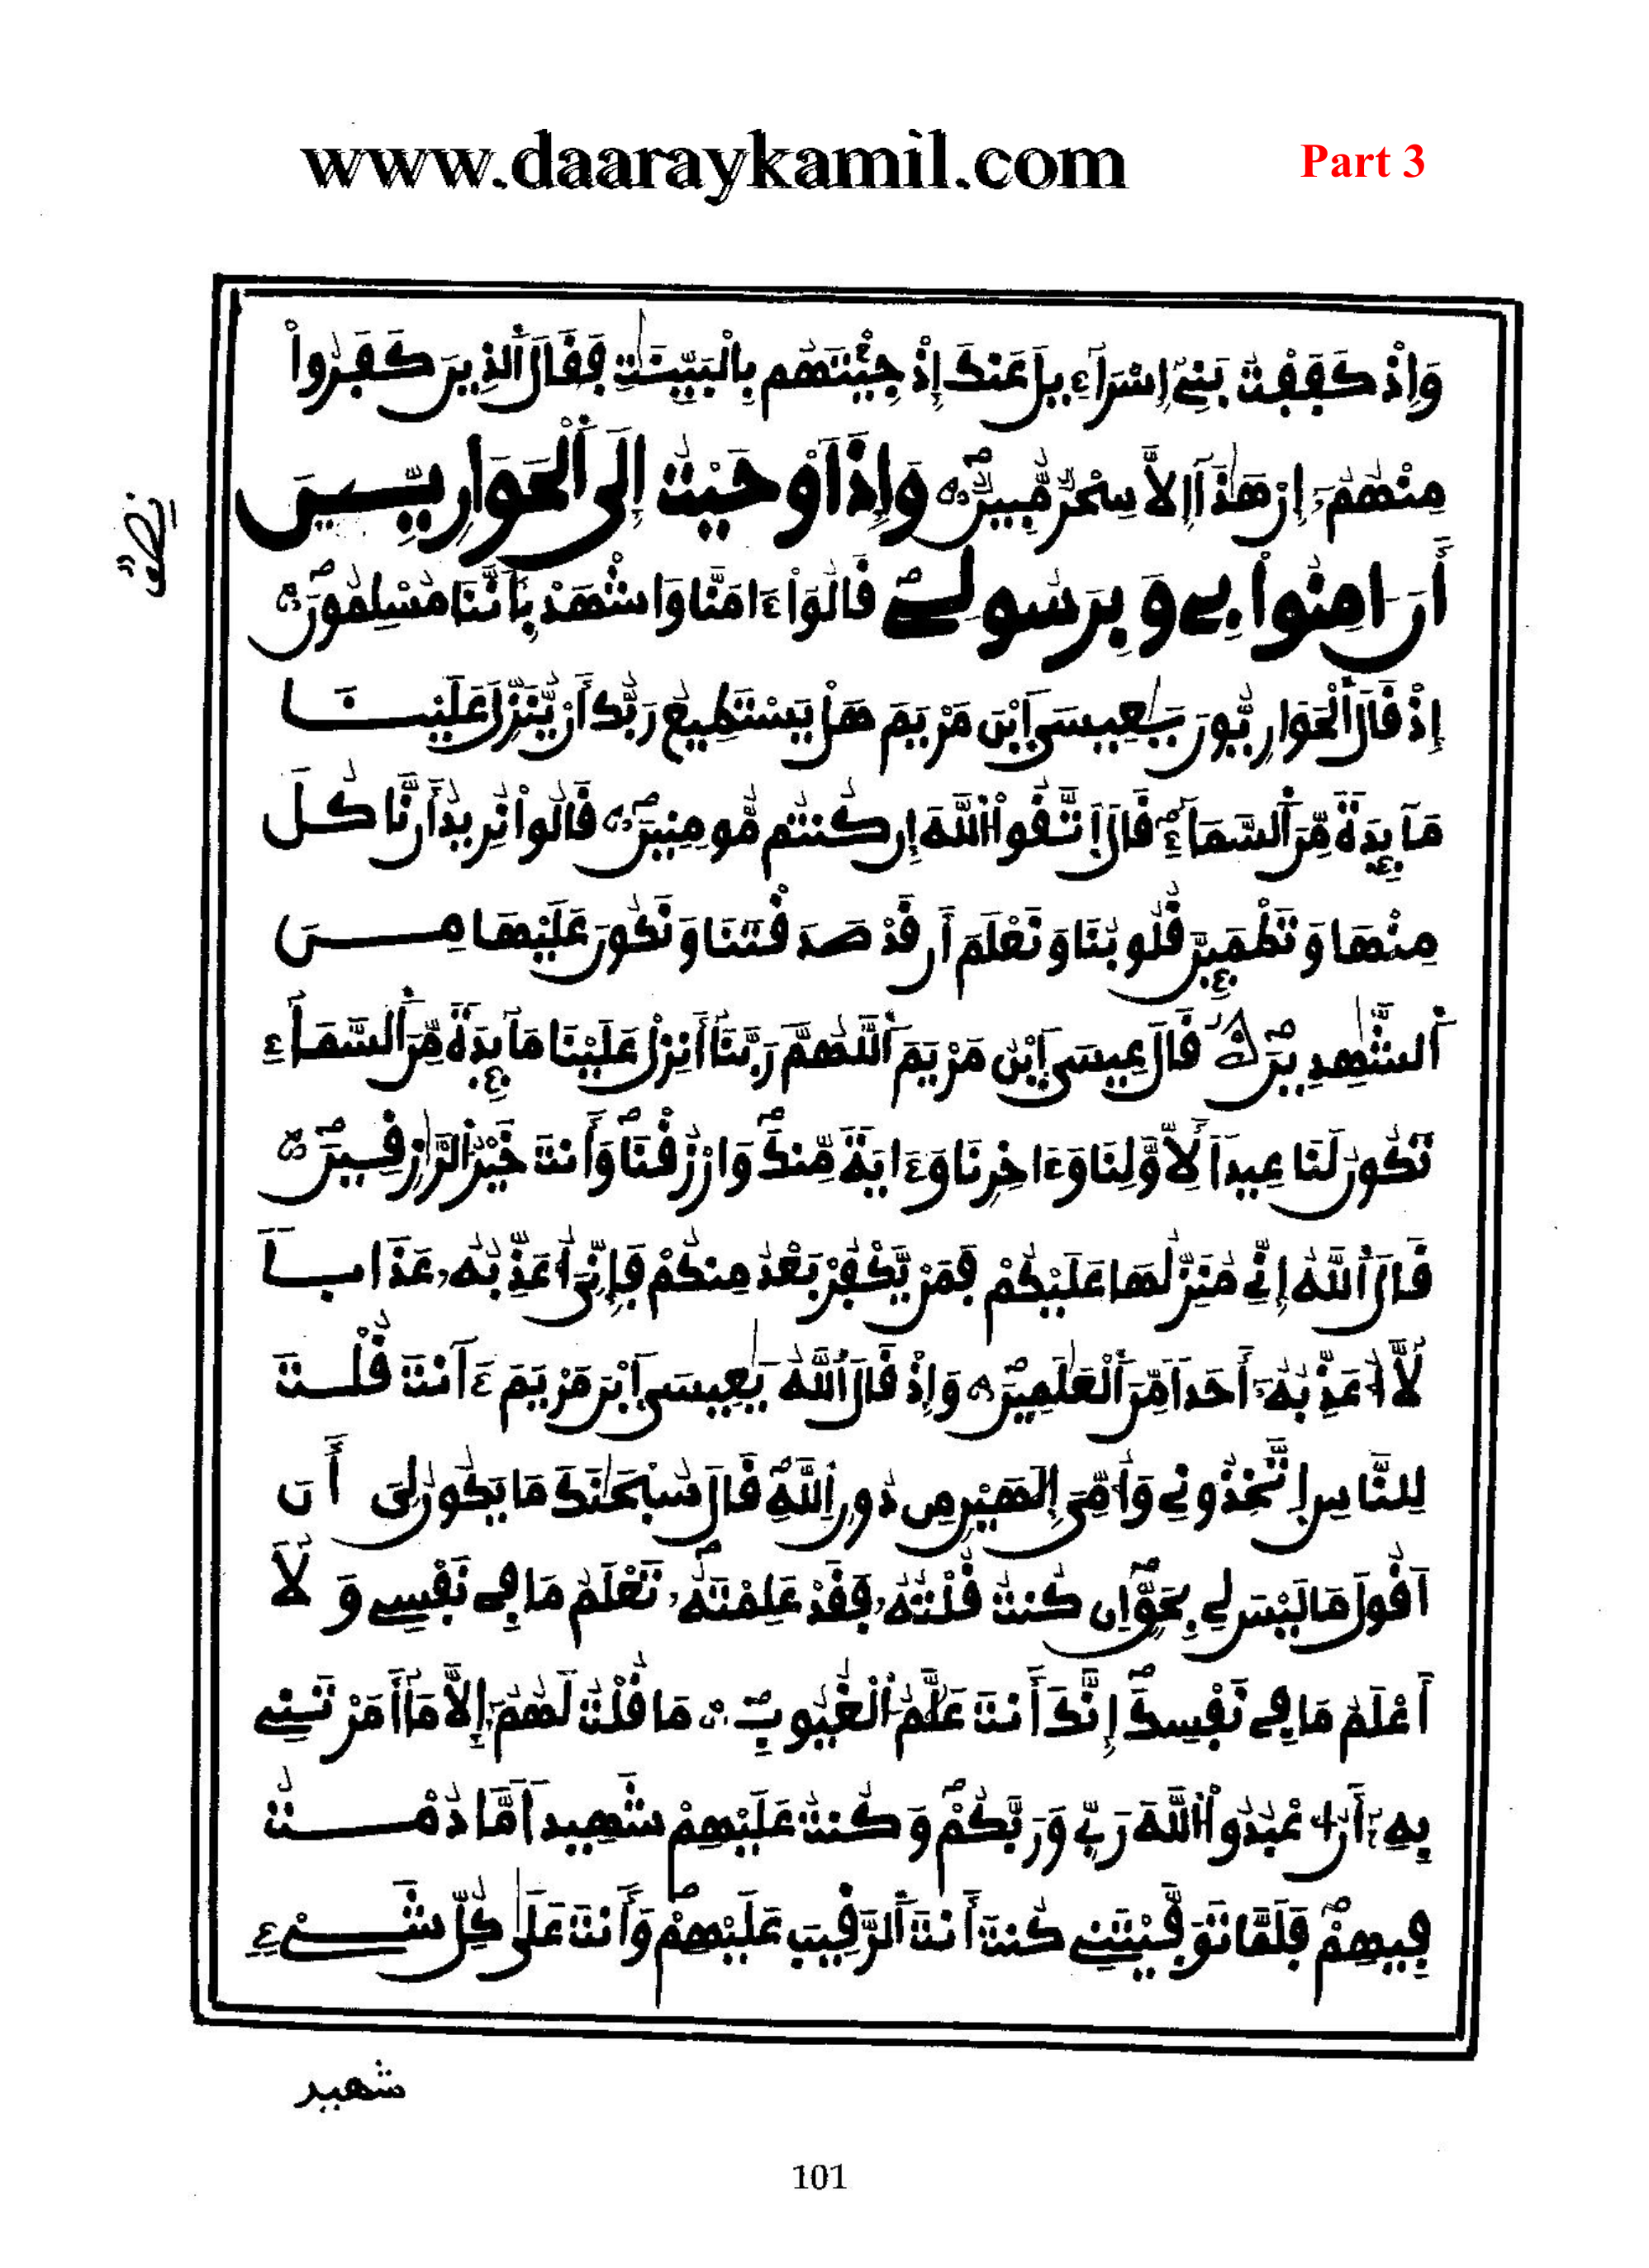 www.daaraykamil.com
Part 3
وَإِذْ كَفَفْتُ بَنِےٓ إِسْرَآءِيلَ عَنكَ إِذْ جِئْتَهُم بِالْبَيِّنَٰتِ فَقَالَ ٱلذِينَ كَفَرُواْ
مِنْهُمُۥٓ إِنْ هَٰذَآ إِلَّا سِحْرٌ مُّبِينٌ وَإِذَ اَوْحَيْتُ إِلَى ٱلْحَوَارِيِّـينَ
أَنَ اٰمِنُواْ بِے وَبِرَسُولِے قَالُوٓاْ ءَامَنَّا وَاشْهَدْ بِأَنَّنَا مُسْلِمُونَ
إِذْ قَالَ ٱلْحَوَارِيُّونَ يَٰعِيسَى اَبْنَ مَرْيَمَ هَلْ يَسْتَطِيعُ رَبُّكَ أَنْ يُّنَزِّلَ عَلَيْنَا
مَآئِدَةً مِّنَ ٱلسَّمَآءِ قَالَ اَتَّقُواْ اُللَّهَ إِن كُنتُم مُّومِنِينَ قَالُواْ نُرِيدُ أَن نَّاكُلَ
مِنْهَا وَتَطْمَئِنَّ قُلُوبُنَا وَنَعْلَمَ أَن قَدْ صَدَقْتَنَا وَنَكُونَ عَلَيْهَا مِنَ
ٱلشَّٰهِدِينَ قَالَ عِيسَى اَبْنُ مَرْيَمَ ٱللَّهُمَّ رَبَّنَآ أَنزِلْ عَلَيْنَا مَآئِدَةً مِّنَ ٱلسَّمَآءِ
تَكُونُ لَنَا عِيداً لِّأَوَّلِنَا وَءَاخِرِنَا وَءَايَةً مِّنكَ وَارْزُقْنَا وَأَنتَ خَيْرُ اُلرَّٰزِقِينَ
قَالَ ٱللَّهُ إِنِّے مُنَزِّلُهَا عَلَيْكُمْ فَمَنْ يَّكْفُرْ بَعْدُ مِنكُمْ فَإِنِّيَ أُعَذِّبُهُۥ عَذَاباً
لَّآ أُعَذِّبُهُۥٓ أَحَداً مِّنَ ٱلْعَٰلَمِينَ وَإِذْ قَالَ ٱللَّهُ يَٰعِيسَى اَبْنَ مَرْيَمَ ءَآنتَ قُلْتَ
لِلنَّاسِ اِتَّخِذُونِے وَأُمِّيَ إِلَٰهَيْنِ مِن دُونِ اِللَّهِ قَالَ سُبْحَٰنَكَ مَا يَكُونُ لِيَ أَنَ
اَقُولَ مَا لَيْسَ لِے بِحَقٍّ اِن كُنتُ قُلْتُهُۥ فَقَدْ عَلِمْتَهُۥ تَعْلَمُ مَا فِے نَفْسِے وَلَآ
أَعْلَمُ مَا فِے نَفْسِكَ إِنَّكَ أَنتَ عَلَّٰمُ اُلْغُيُوبِ مَا قُلْتُ لَهُمُۥٓ إِلَّا مَآ أَمَرْتَنِے
بِهِۦٓ أَنُ اُعْبُدُواْ اُللَّهَ رَبِّے وَرَبَّكُمْ وَكُنتُ عَلَيْهِمْ شَهِيداً مَّا دُمْتُ
فِيهِمْ فَلَمَّا تَوَفَّيْتَنِے كُنتَ أَنتَ ٱلرَّقِيبَ عَلَيْهِمْ وَأَنتَ عَلَىٰ كُلِّ شَےْءٍ
شهيد
101